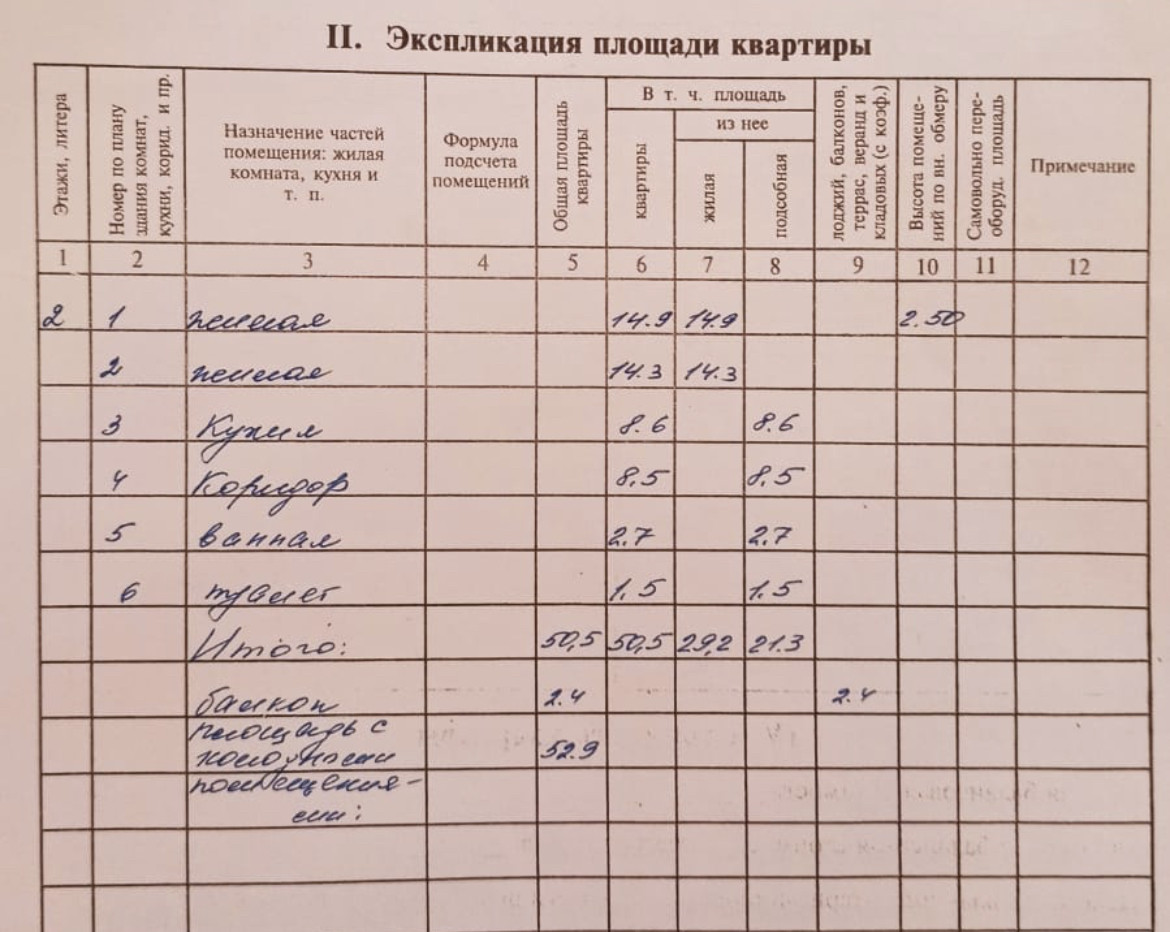 II. Экспликация площади квартиры
Этажи, литера
Номер по плану здания комнат, кухни, корид. и пр.
Назначение частей помещения: жилая комната, кухня и т. п.
Формула подсчета помещений
Общая площадь квартиры
В т. ч. площадь
из нее
квартиры
жилая
подсобная
лоджий, балконов, террас, веранд и кладовых (с коэф.)
Высота помещений по вн. обмеру
Самовольно переоборуд. площадь
Примечание
1 2 3 4 5 6 7 8 9 10 11 12
2 1 жилая 14.9 14.9 2.50
2 жилая 14.3 14.3
3 Кухня 8.6 8.6
4 Коридор 8,5 8,5
5 ванная 2.7 2.7
6 туалет 1.5 1.5
Итого: 50,5 50,5 29,2 21.3
балкон 2.4 2.4
площадь с
холодными 52.9
помещения-
ми: